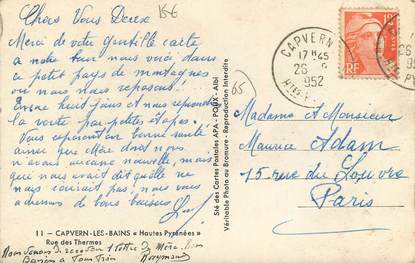 Chers Vous Deux
Merci de votre gentille carte
à notre tour nous voici dans
ce petit pays de montagnes
où nous nous reposons.
Encore huit jours et nous reprendrons
la route par petites étapes.
Vous espérant en bonne santé
ainsi que Mère dont nous
n'avons aucune nouvelle, mais
qui nous avait dit qu'elle ne
nous écrirait pas, nous vous
adressons de bons baisers
11 - CAPVERN-LES-BAINS « Hautes Pyrénées »
Rue des Thermes
Nous venons de recevoir 1 lettre de Mère
Baisers à Raymond
Sté des Cartes Postales APA - POUX - Albi
Véritable Photo au Bromure - Reproduction Interdite
156
65
CAPVERN
17H45
26 - 9
1952
HTES-P
RF
Madame et Monsieur
Maurice Adam
15 rue du Louvre
Paris